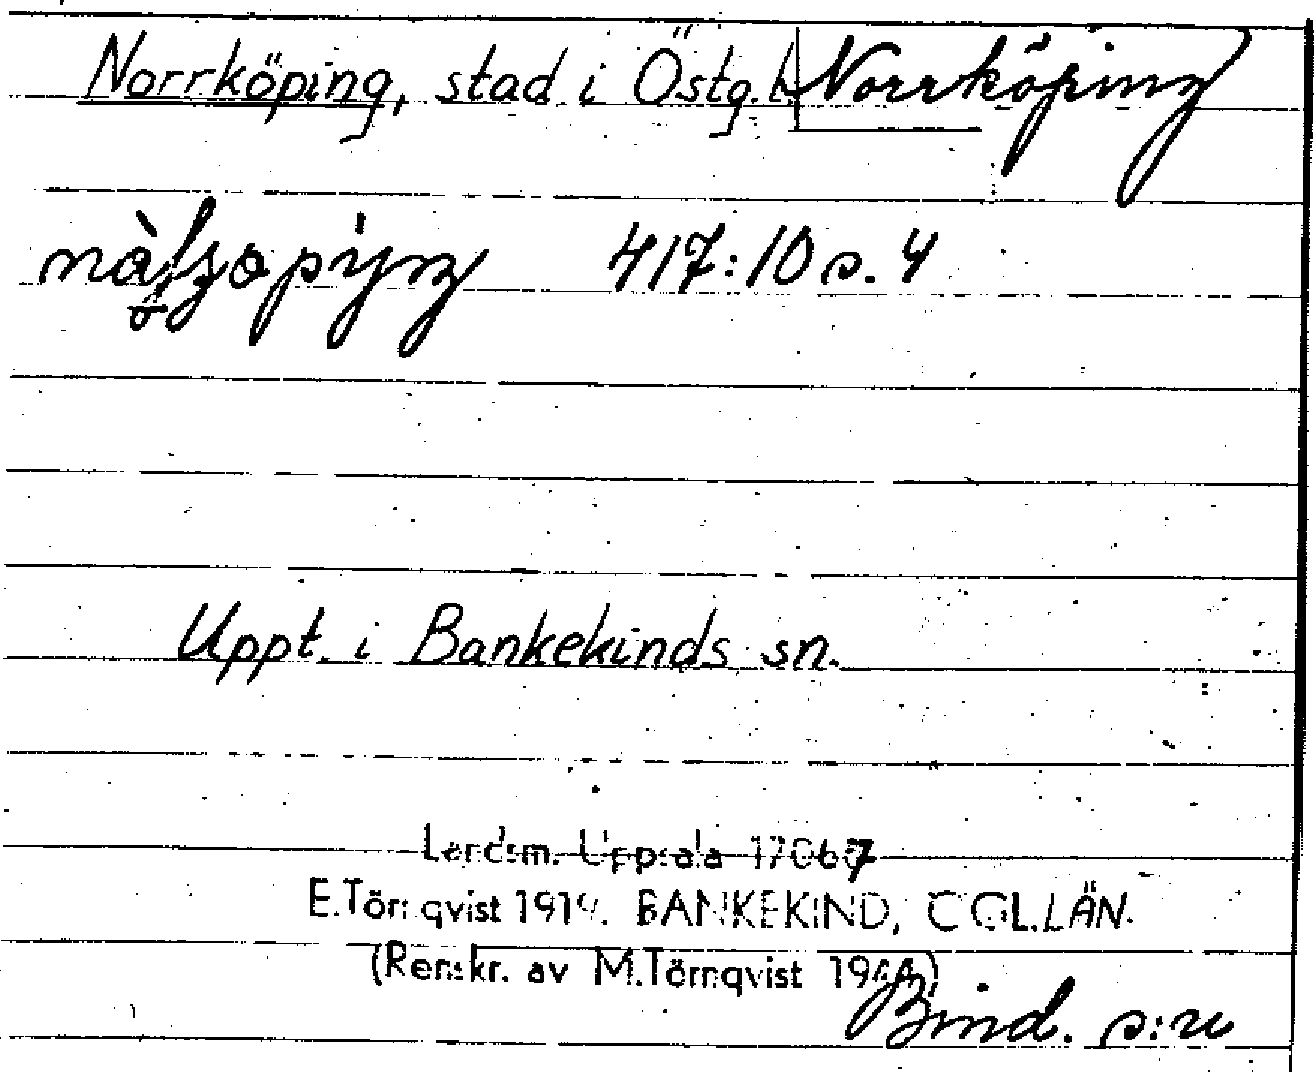 Norrköping, stad i Östg.l. Norrköping
417:10 s. 4
Uppt. i Bankekinds sn.
Landsm. Uppsala 17067
E.Törnqvist 1919. BANKEKIND, ÖGL.LÄN.
(Renskr. av M.Törnqvist 1944)
Bind. s:n